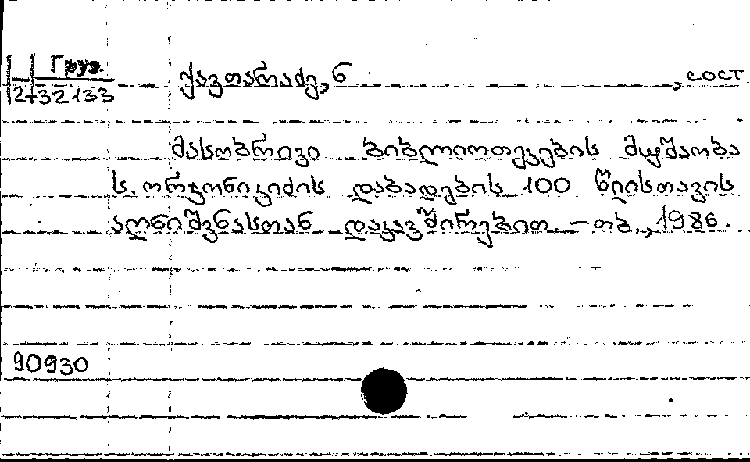 Груз.
2-32133
ქავთარაძე, ნ , сост
მასობრივი ბიბლიოთეკების მუშაობა
ს. ორჯონიკიძის დაბადების 100 წლისთავის
აღნიშვნასთან დაკავშირებით. - თბ., 1986.
90930